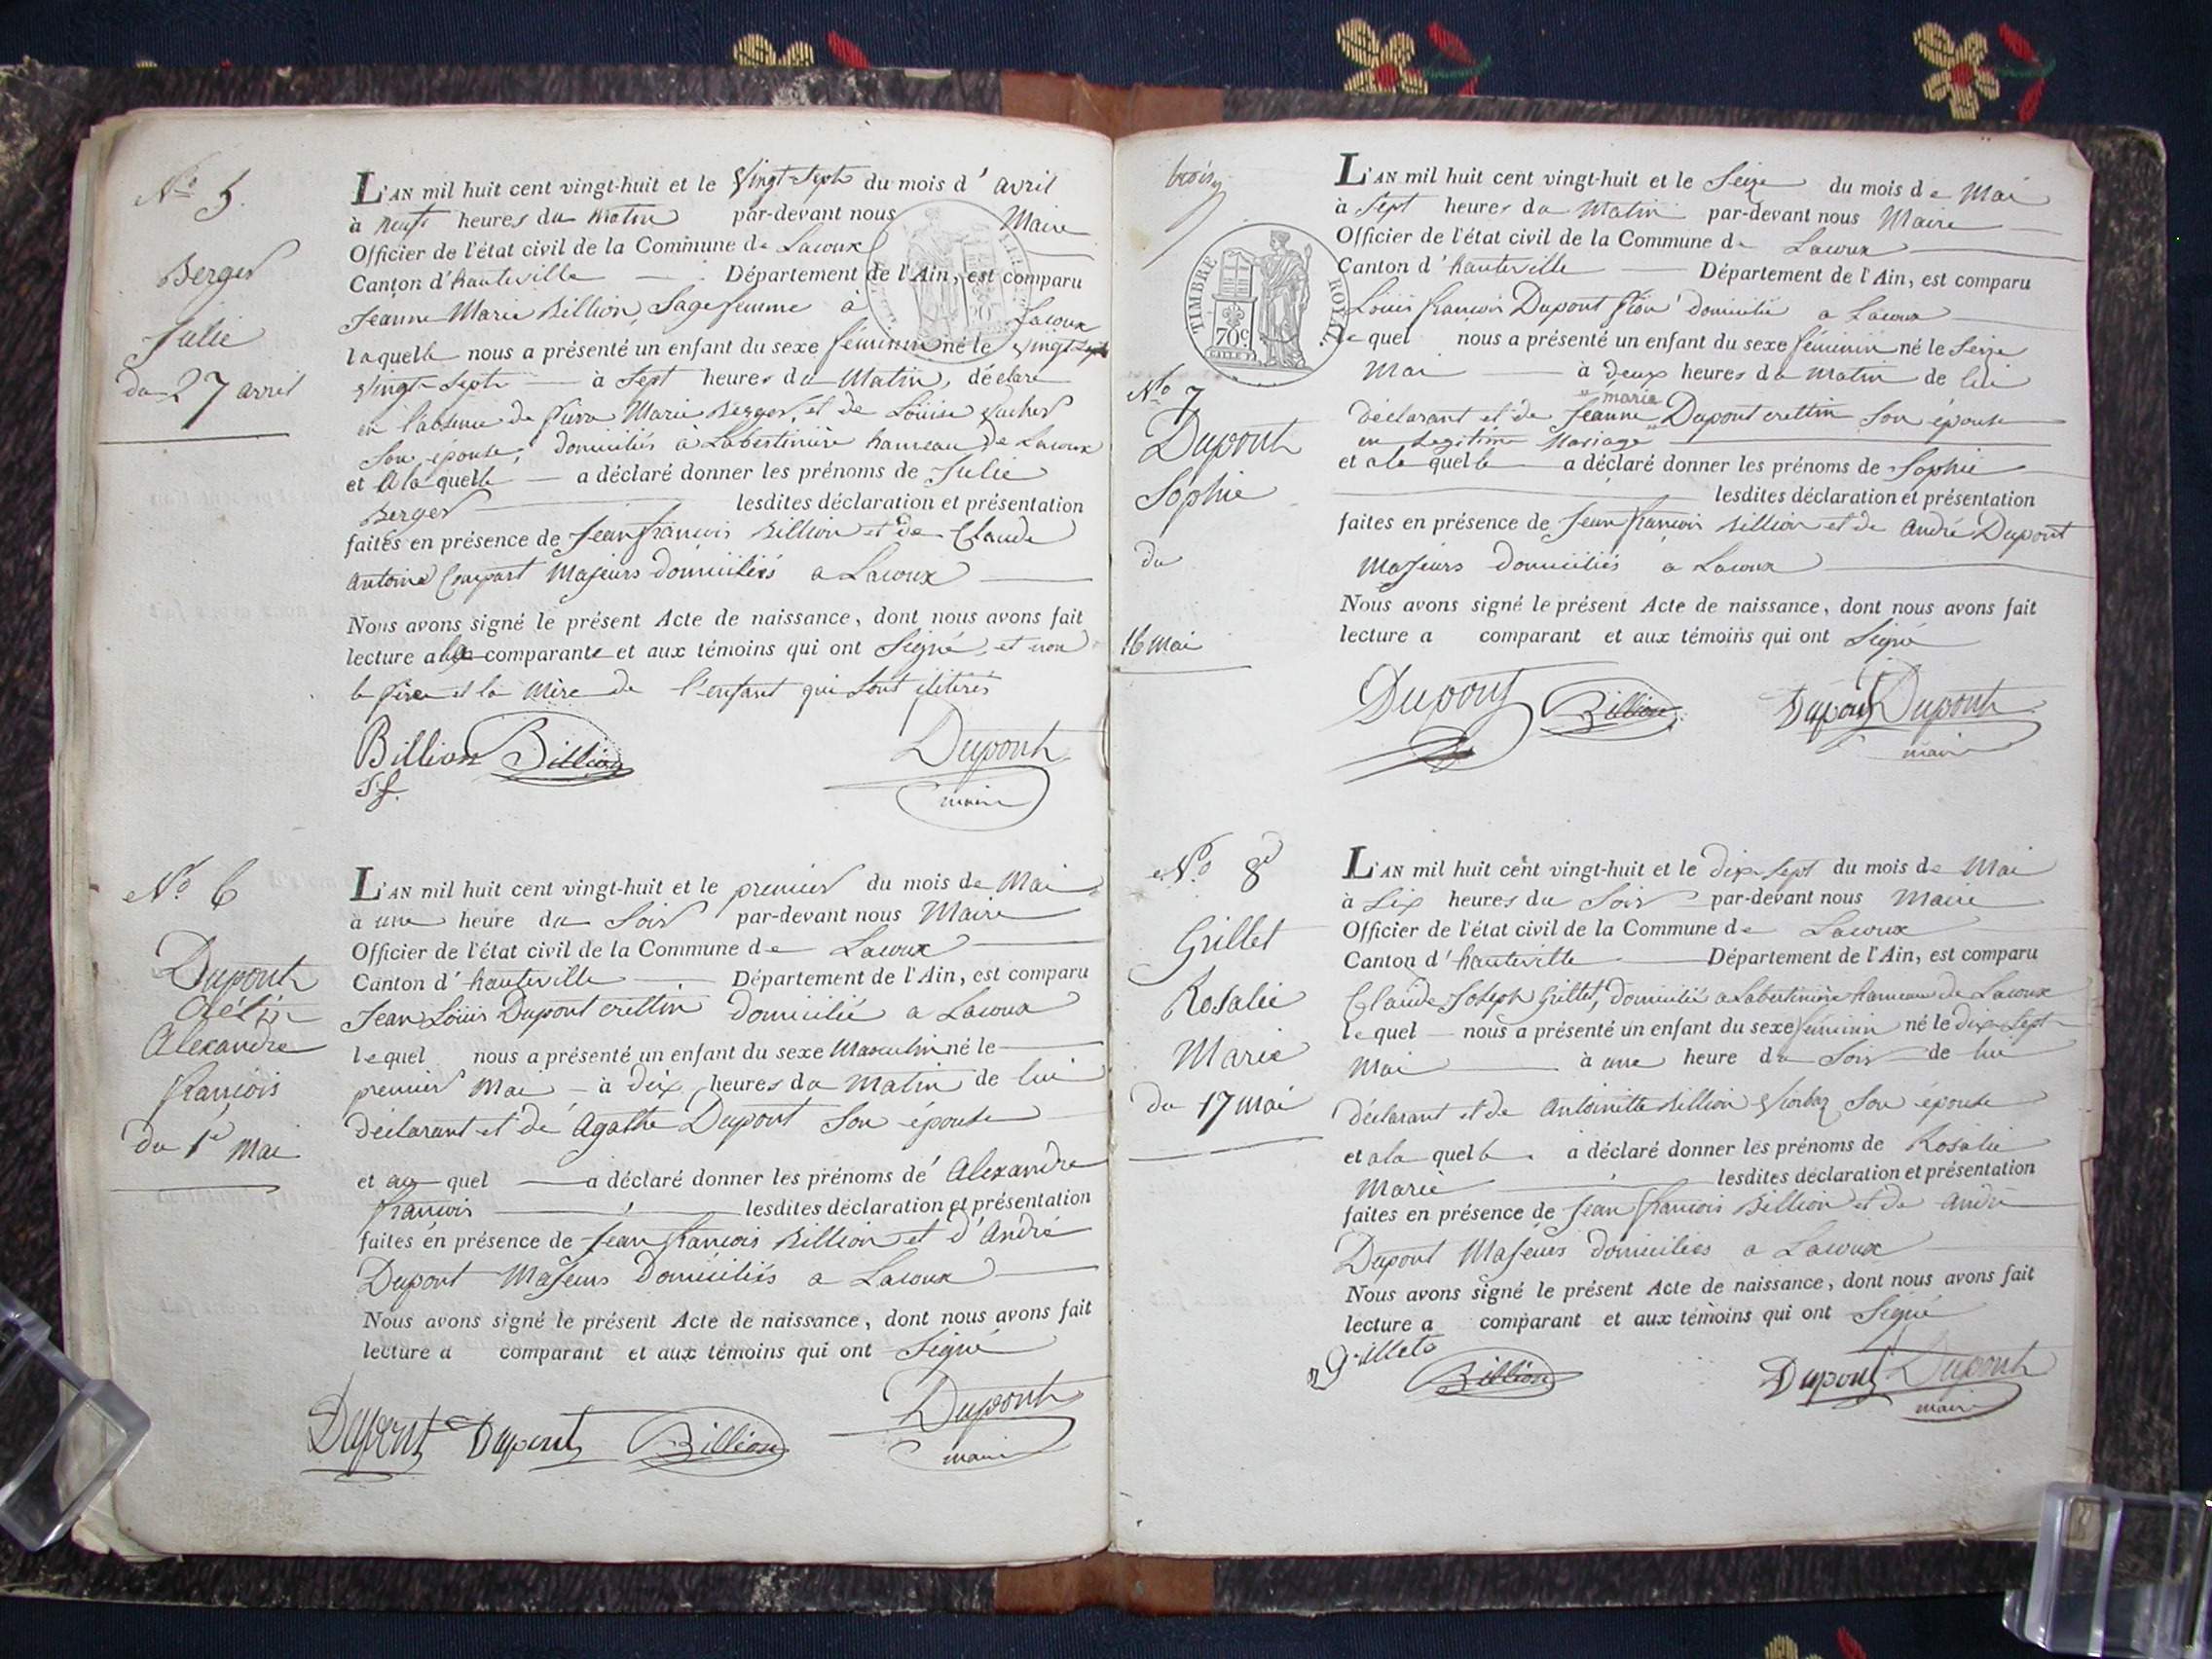 N.o 5.
Berger
Julie
du 27 avril
L'AN mil huit cent vingt-huit et le vingt Sept du mois d'avril
à neuf heures du Matin par-devant nous Maire
Officier de l'état civil de la Commune de Lacoux
Canton d'hauteville Département de l'Ain, est comparu
Jeanne Marie Billion, Sage femme à Lacoux
laquelle nous a présenté un enfant du sexe féminin né le vingt Sept
vingt Sept à Sept heures du Matin, déclare
en l'absence de Marie Berger, et de Louise
Son épouse, domiciliés à Labertinière hameau de Lacoux
et A la quelle a déclaré donner les prénoms de Julie
Berger lesdites déclaration et présentation
faites en présence de Jean françois Billion et de Claude
Antoine Compart Majeurs domiciliés a Lacoux
Nous avons signé le présent Acte de naissance, dont nous avons fait
lecture a la comparante et aux témoins qui ont Signé, et non
le père et la Mère de l'enfant qui Sont ilitérés
Billion Billion Dupont
S f. maire
N.o 6
Dupont
Crétin
Alexandre
françois
du 1er Mai
L'AN mil huit cent vingt-huit et le premier du mois de Mai
à une heure du Soir par-devant nous Maire
Officier de l'état civil de la Commune de Lacoux
Canton d'hauteville Département de l'Ain, est comparu
Jean Louis Dupont crettin domicilié a Lacoux
lequel nous a présenté un enfant du sexe Masculin né le
premier Mai à dix heures du Matin de lui
déclarant et de Agathe Dupont Son épouse
et au quel a déclaré donner les prénoms de Alexandre
françois lesdites déclaration et présentation
faites en présence de Jean françois Billion et d'André
Dupont Majeurs Domiciliés a Lacoux
Nous avons signé le présent Acte de naissance, dont nous avons fait
lecture a comparant et aux témoins qui ont Signé
Dupont Dupont Billion Dupont
maire
trois
TIMBRE ROYAL
70c
N.o 7
Dupont
Sophie
du
16 mai
L'AN mil huit cent vingt-huit et le Seize du mois de Mai
à Sept heures du Matin par-devant nous Maire
Officier de l'état civil de la Commune de Lacoux
Canton d'hauteville Département de l'Ain, est comparu
Louis françois Dupont domicilié a Lacoux
le quel nous a présenté un enfant du sexe féminin né le Seize
Mai à deux heures du matin de lui
marie
déclarant et de Jeanne Dupont crettin Son épouse
en Legitime Mariage
et a la quelle a déclaré donner les prénoms de Sophie
lesdites déclaration et présentation
faites en présence de Jean françois Billion et de André Dupont
Majeurs domiciliés a Lacoux
Nous avons signé le présent Acte de naissance, dont nous avons fait
lecture a comparant et aux témoins qui ont Signé
Dupont Billion Dupont Dupont
maire
N.o 8
Grillet
Rosalie
Marie
du 17 mai
L'AN mil huit cent vingt-huit et le dix Sept du mois de Mai
à Six heures du Soir par-devant nous Maire
Officier de l'état civil de la Commune de Lacoux
Canton d'hauteville Département de l'Ain, est comparu
Claude Joseph Grillet, domicilié a Labertinière hameau de Lacoux
lequel nous a présenté un enfant du sexe féminin né le dix Sept
Mai à une heure du Soir de lui
déclarant et de Antoinette Billion Son épouse
et a la quelle a déclaré donner les prénoms de Rosalie
Marie lesdites déclaration et présentation
faites en présence de Jean françois Billion et de André
Dupont Majeurs domiciliés a Lacoux
Nous avons signé le présent Acte de naissance, dont nous avons fait
lecture a comparant et aux témoins qui ont Signé
Grillet Billion Dupont Dupont
maire